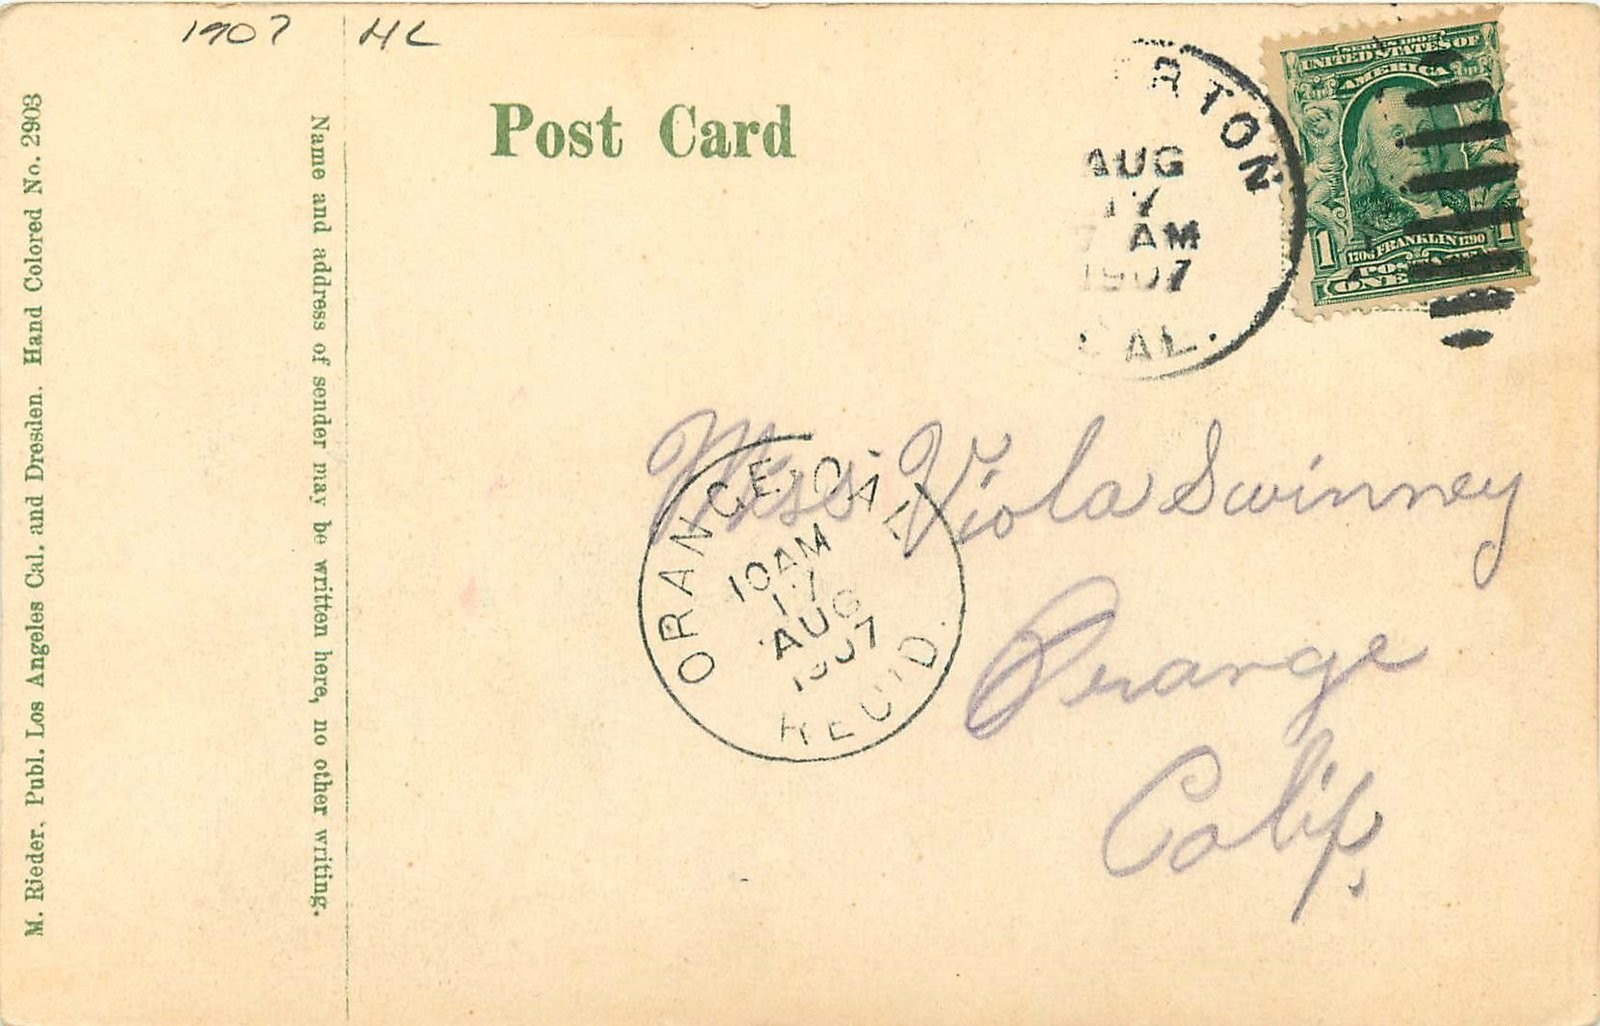 1907 HL
Post Card
M. Rieder, Publ. Los Angeles Cal. and Dresden. Hand Colored No. 2903
Name and address of sender may be written here, no other writing.
RTON
AUG
17
7 AM
1907
CAL.
SERIES 1902
UNITED STATES OF
AMERICA
1706 FRANKLIN 1790
1 1
POSTAGE
ONE
Miss Viola Swinney
Orange
Calif.
ORANGE, CAL.
10 AM
17
AUG
1907
REC'D.